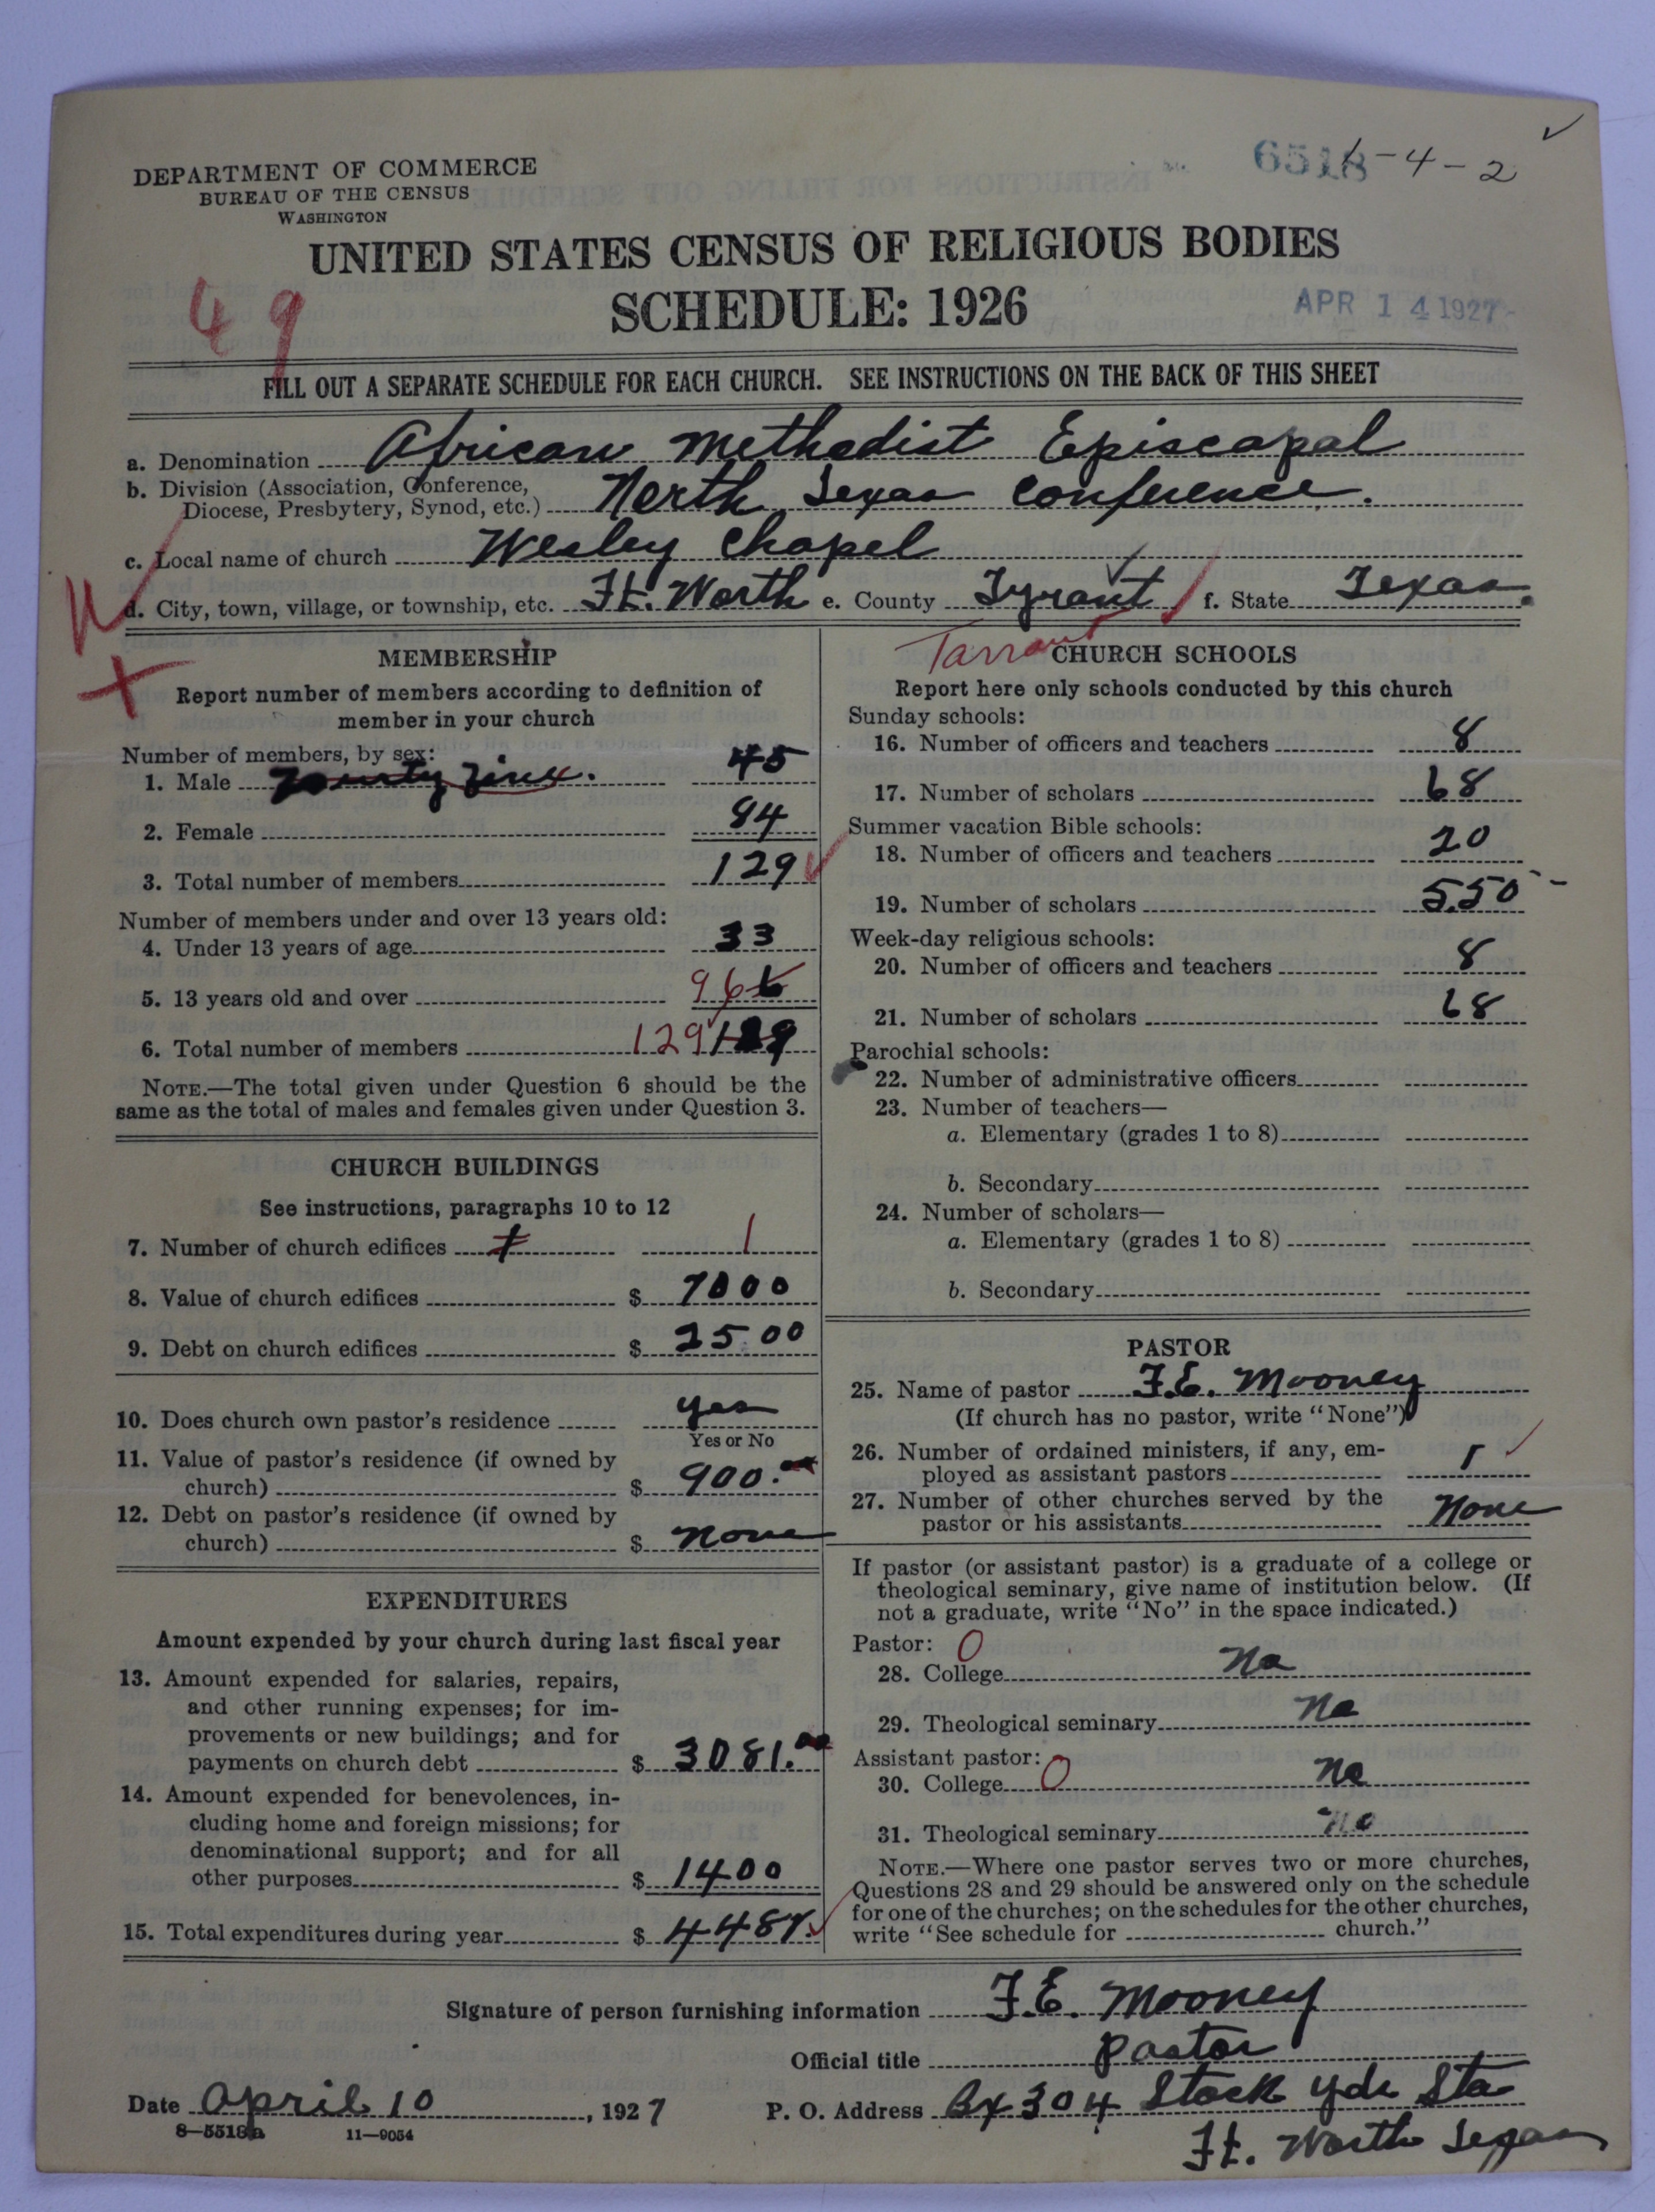 DEPARTMENT OF COMMERCE
BUREAU OF THE CENSUS
WASHINGTON
6518
-4-2
UNITED STATES CENSUS OF RELIGIOUS BODIES
SCHEDULE: 1926
49
APR 14 1927
FILL OUT A SEPARATE SCHEDULE FOR EACH CHURCH. SEE INSTRUCTIONS ON THE BACK OF THIS SHEET
a. Denomination African Methodist Episcapal
b. Division (Association, Conference,
Diocese, Presbytery, Synod, etc.) North Texas Conference.
c. Local name of church Wesley Chapel
d. City, town, village, or township, etc. Ft. Worth e. County Tyrant f. State Texas.
Tarrant
MEMBERSHIP
Report number of members according to definition of
member in your church
Number of members, by sex:
1. Male 45
2. Female 84
3. Total number of members 129
Number of members under and over 13 years old:
4. Under 13 years of age 33
5. 13 years old and over 96
6. Total number of members 129
NOTE.—The total given under Question 6 should be the
same as the total of males and females given under Question 3.
CHURCH BUILDINGS
See instructions, paragraphs 10 to 12
7. Number of church edifices 1 1
8. Value of church edifices $ 7000
9. Debt on church edifices $ 25.00
10. Does church own pastor's residence yes
Yes or No
11. Value of pastor's residence (if owned by
church) $ 900.
12. Debt on pastor's residence (if owned by
church) $ none
EXPENDITURES
Amount expended by your church during last fiscal year
13. Amount expended for salaries, repairs,
and other running expenses; for im-
provements or new buildings; and for
payments on church debt $ 3081.
14. Amount expended for benevolences, in-
cluding home and foreign missions; for
denominational support; and for all
other purposes $ 1400
15. Total expenditures during year $ 4481.
CHURCH SCHOOLS
Report here only schools conducted by this church
Sunday schools:
16. Number of officers and teachers 8
17. Number of scholars 68
Summer vacation Bible schools:
18. Number of officers and teachers 20
19. Number of scholars 5.50
Week-day religious schools:
20. Number of officers and teachers 8
21. Number of scholars 68
Parochial schools:
22. Number of administrative officers
23. Number of teachers—
a. Elementary (grades 1 to 8)
b. Secondary
24. Number of scholars—
a. Elementary (grades 1 to 8)
b. Secondary
PASTOR
25. Name of pastor F.E. Mooney
(If church has no pastor, write "None")
26. Number of ordained ministers, if any, em-
ployed as assistant pastors
27. Number of other churches served by the
pastor or his assistants None
If pastor (or assistant pastor) is a graduate of a college or
theological seminary, give name of institution below. (If
not a graduate, write "No" in the space indicated.)
Pastor: 0
28. College No
29. Theological seminary No
Assistant pastor: 0
30. College No
31. Theological seminary no
NOTE.—Where one pastor serves two or more churches,
Questions 28 and 29 should be answered only on the schedule
for one of the churches; on the schedules for the other churches,
write "See schedule for church."
Signature of person furnishing information F.E. Mooney
Official title pastor
Date April 10, 1927 P. O. Address Bx 304 Stock yds Sta
Ft. Worth Texas
8—5518a 11—9054